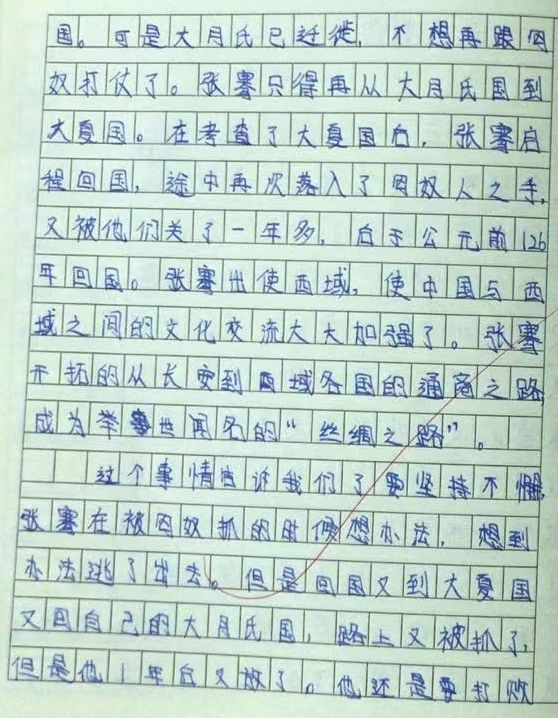 国。可是大月氏已迁徙，不想再跟匈
奴打仗了。张骞只得再从大月氏国到
大夏国。在考查了大夏国后，张骞启
程回国，途中再次落入了匈奴人之手，
又被他们关了一年多，后于公元前126
年回国。张骞出使西域，使中国与西
域之间的文化交流大大加强了。张骞
开拓的从长安到西域各国的通商之路，
成为举世闻名的“丝绸之路”。
这个事情告诉我们了要坚持不懈，
张骞在被匈奴抓的时候想办法，想到
办法逃了出去。但是回国又到大夏国
又回自己的大月氏国，路上又被抓了，
但是他1年后又放了。他还是要打败